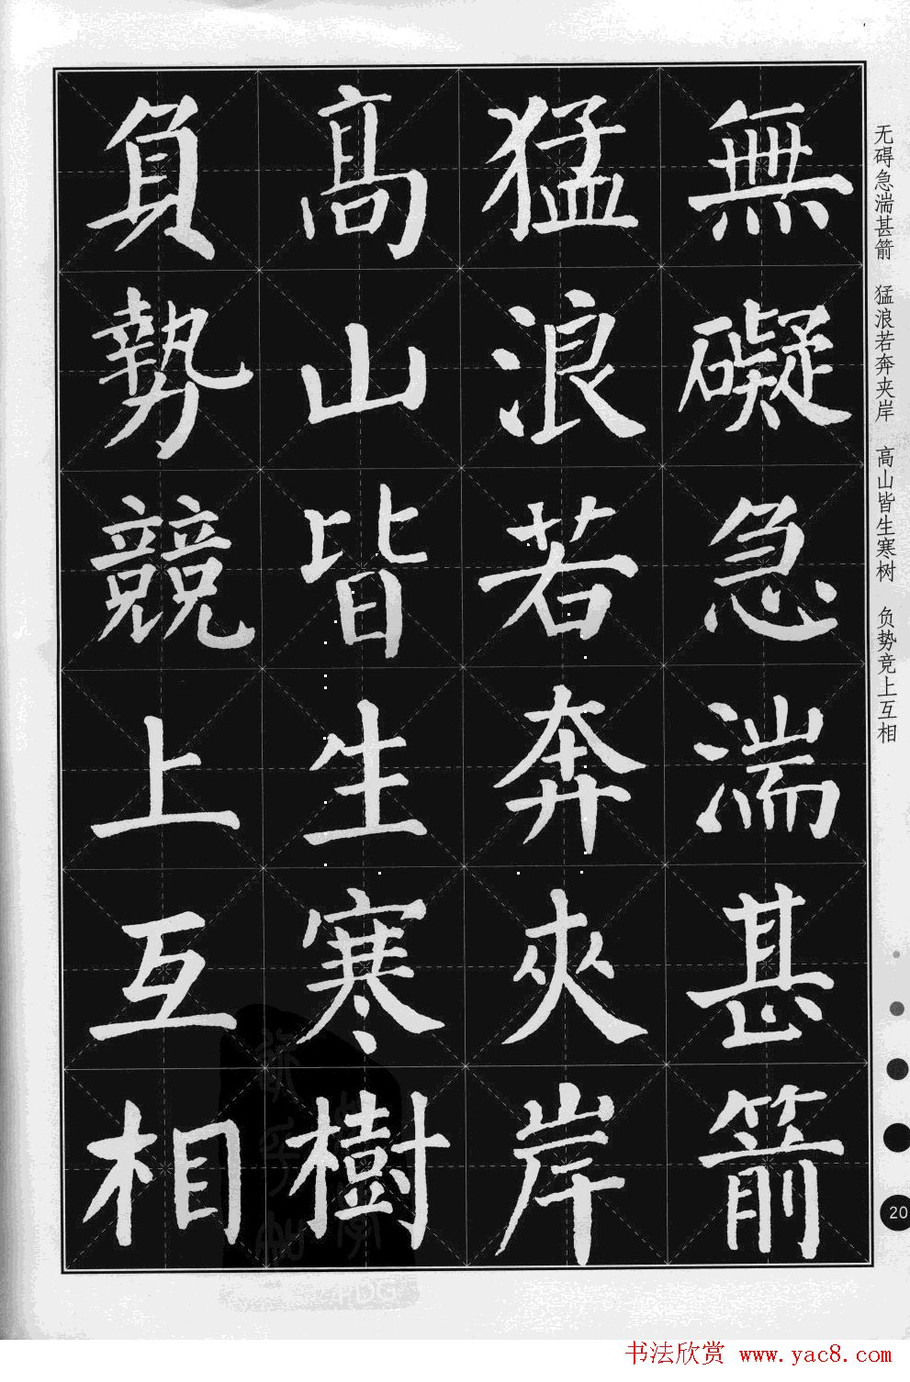 無礙急湍甚箭
猛浪若奔夾岸
高山皆生寒樹
負勢競上互相
无碍急湍甚箭 猛浪若奔夹岸 高山皆生寒树 负势竞上互相
20
书法欣赏 www.yac8.com